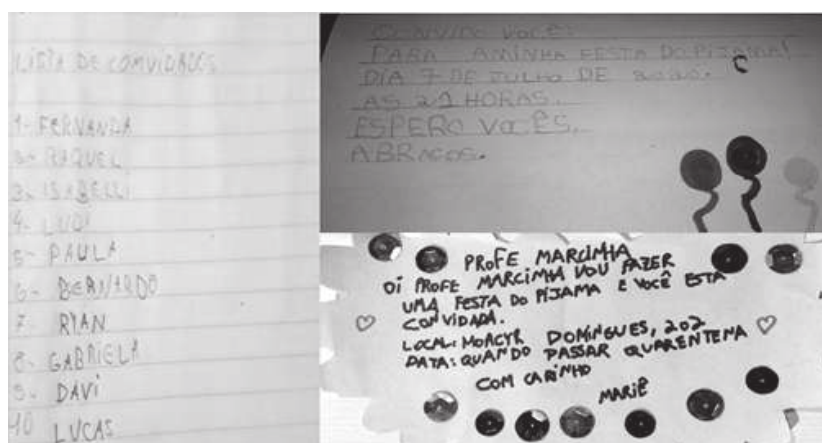 LISTA DE COMVIDADOS
1- FERNANDA
2- RAQUEL
3- ISABELLI
4- LUIZ
5- PAULA
6- BERNARDO
7- RYAN
8- GABRIELA
9- DAVI
10 LUCAS
CONVIDO VOCÊ:
PARA AMINHA FESTA DO PIJAMA!
DIA 7 DE JULHO DE 2020.
AS 21 HORAS.
ESPERO VOCÊS.
ABRAÇOS.
PROFE MARCINHA
OI PROFE MARCINHA VOU FAZER
UMA FESTA DO PIJAMA E VOCÊ ESTA
CONVIDADA.
LOCAL: MOACYR DOMINGUES, 202
DATA: QUANDO PASSAR QUARENTENA
COM CARINHO
MARIÊ